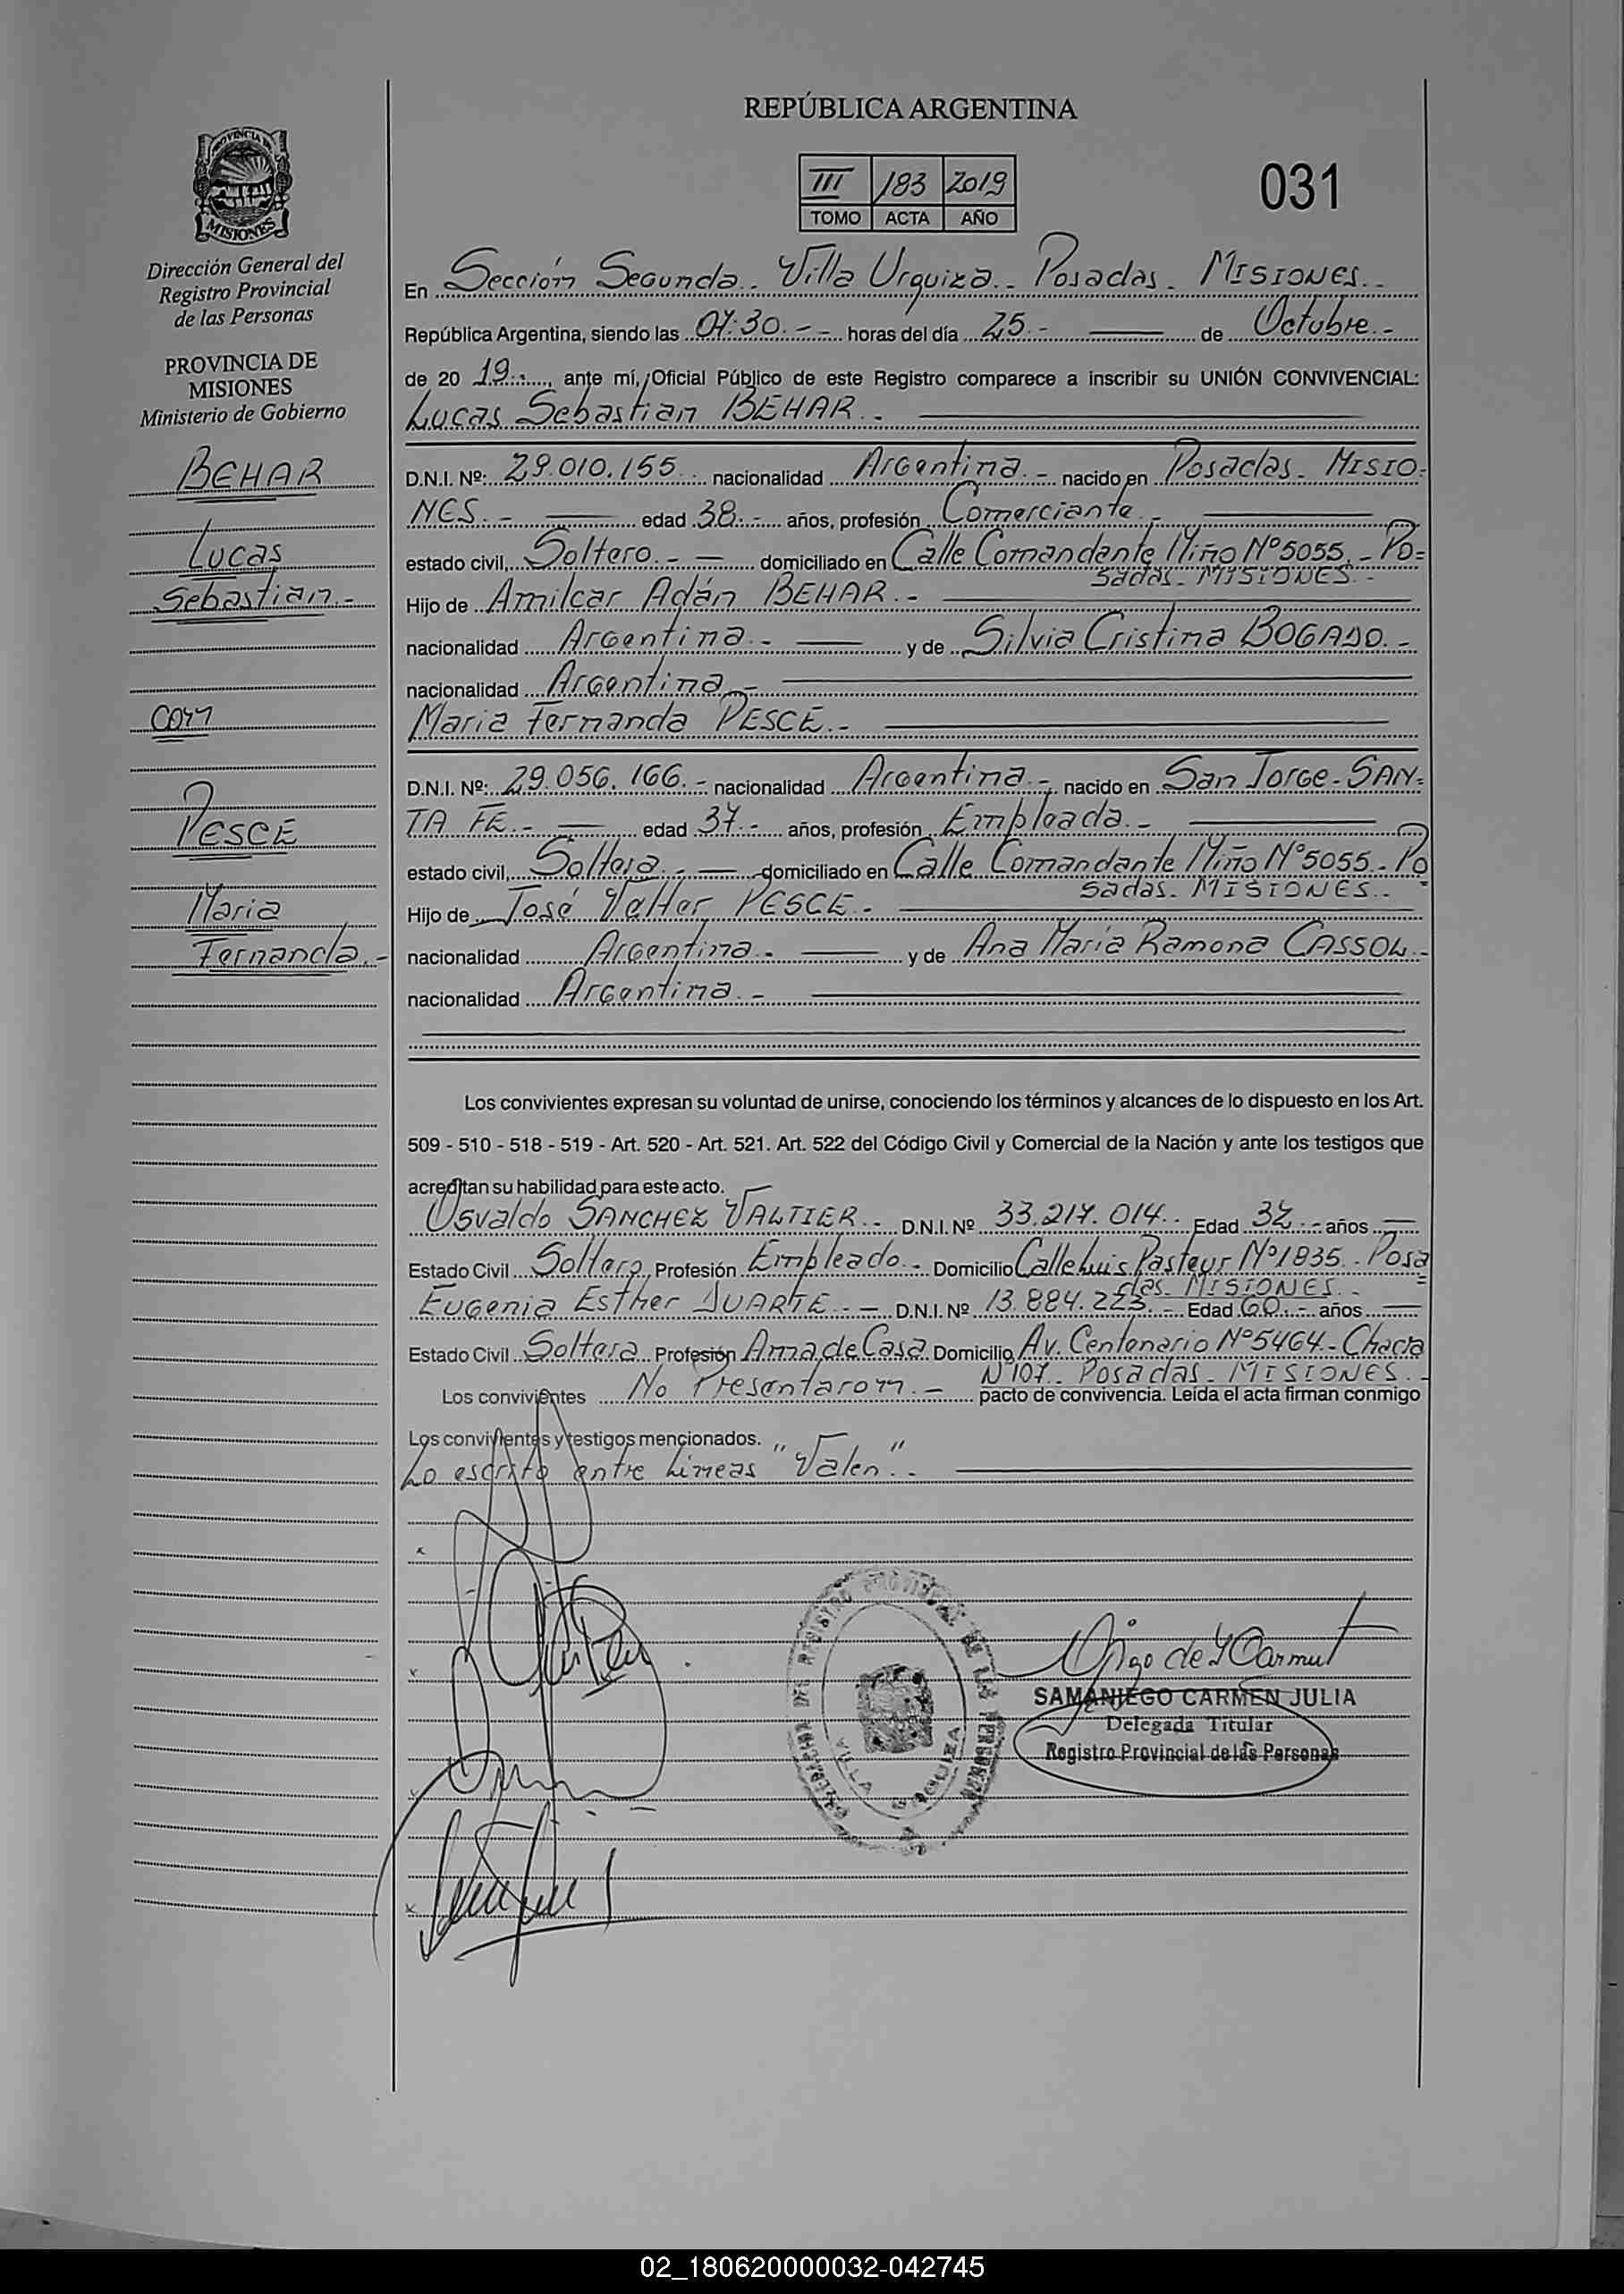 REPÚBLICA ARGENTINA
III 183 2019
TOMO ACTA AÑO
031
PROVINCIA DE
MISIONES
Dirección General del
Registro Provincial
de las Personas
PROVINCIA DE
MISIONES
Ministerio de Gobierno
BEHAR
Lucas
Sebastian.-
con
PESCE
Maria
Fernanda.-
En Sección Segunda.. Villa Urquiza.- Posadas.- MISIONES.-
República Argentina, siendo las 07:30.-- horas del día 25.- de Octubre.-
de 20 19.-, ante mí, Oficial Público de este Registro comparece a inscribir su UNIÓN CONVIVENCIAL:
Lucas Sebastian BEHAR.-
D.N.I. Nº: 29.010.155.. nacionalidad Argentina.- nacido en Posadas.- MISIO=
NES.- edad 38.- años, profesión Comerciante.-
estado civil, Soltero.- domiciliado en Calle Comandante Miño Nº5055.- Po=
sadas.- MISIONES.-
Hijo de Amilcar Adán BEHAR.-
nacionalidad Argentina.- y de Silvia Cristina BOGADO.-
nacionalidad Argentina.-
Maria Fernanda PESCE.-
D.N.I. Nº: 29.056.166.- nacionalidad Argentina.- nacido en San Jorge- SAN=
TA FE.- edad 37.- años, profesión Empleada.-
estado civil, Soltera.- domiciliado en Calle Comandante Miño Nº5055.- Po
sadas.- MISIONES.-
Hijo de José Valter PESCE.-
nacionalidad Argentina.- y de Ana Maria Ramona CASSOL.-
nacionalidad Argentina.-
Los convivientes expresan su voluntad de unirse, conociendo los términos y alcances de lo dispuesto en los Art.
509 - 510 - 518 - 519 - Art. 520 - Art. 521. Art. 522 del Código Civil y Comercial de la Nación y ante los testigos que
acreditan su habilidad para este acto.
Osvaldo SANCHEZ VALTIER.- D.N.I. Nº 33.217.014.. Edad 32.- años
Estado Civil Soltero, Profesión Empleado.- Domicilio Calle Luis Pasteur Nº1835.- Posa=
das. MISIONES.-
Eugenia Esther DUARTE.- D.N.I. Nº 13.884.223.- Edad 60.- años
Estado Civil Soltera Profesión Ama de Casa Domicilio Av. Centenario Nº5464- Chacra
Nº107.- Posadas.- MISIONES.-
Los convivientes No Presentaron.- pacto de convivencia. Leída el acta firman conmigo
Los convivientes y testigos mencionados.
Lo escrito entre Lineas "Valen".-
DELEGACION DEL REGISTRO PROVINCIAL DE LAS PERSONAS
VILLA URQUIZA
SAMANIEGO CARMEN JULIA
Delegada Titular
Registro Provincial de las Personas
02_180620000032-042745